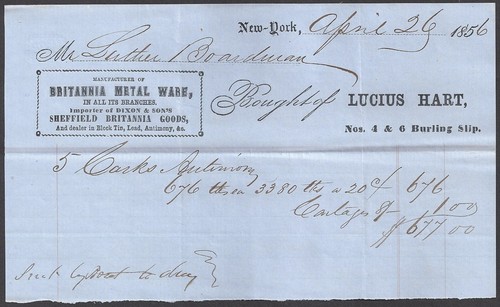 New-York, April 26 1856
Mr Luther Boardman
Bought of LUCIUS HART,
Nos. 4 & 6 Burling Slip.
MANUFACTURER OF
BRITANNIA METAL WARE,
IN ALL ITS BRANCHES,
Importer of DIXON & SON'S
SHEFFIELD BRITANNIA GOODS,
And dealer in Block Tin, Lead, Antimony, &c.
5 Casks Antimony
676 lbs ea 3380 lbs a 20 c/ 676
Cartages 1.00
$677 00
to day